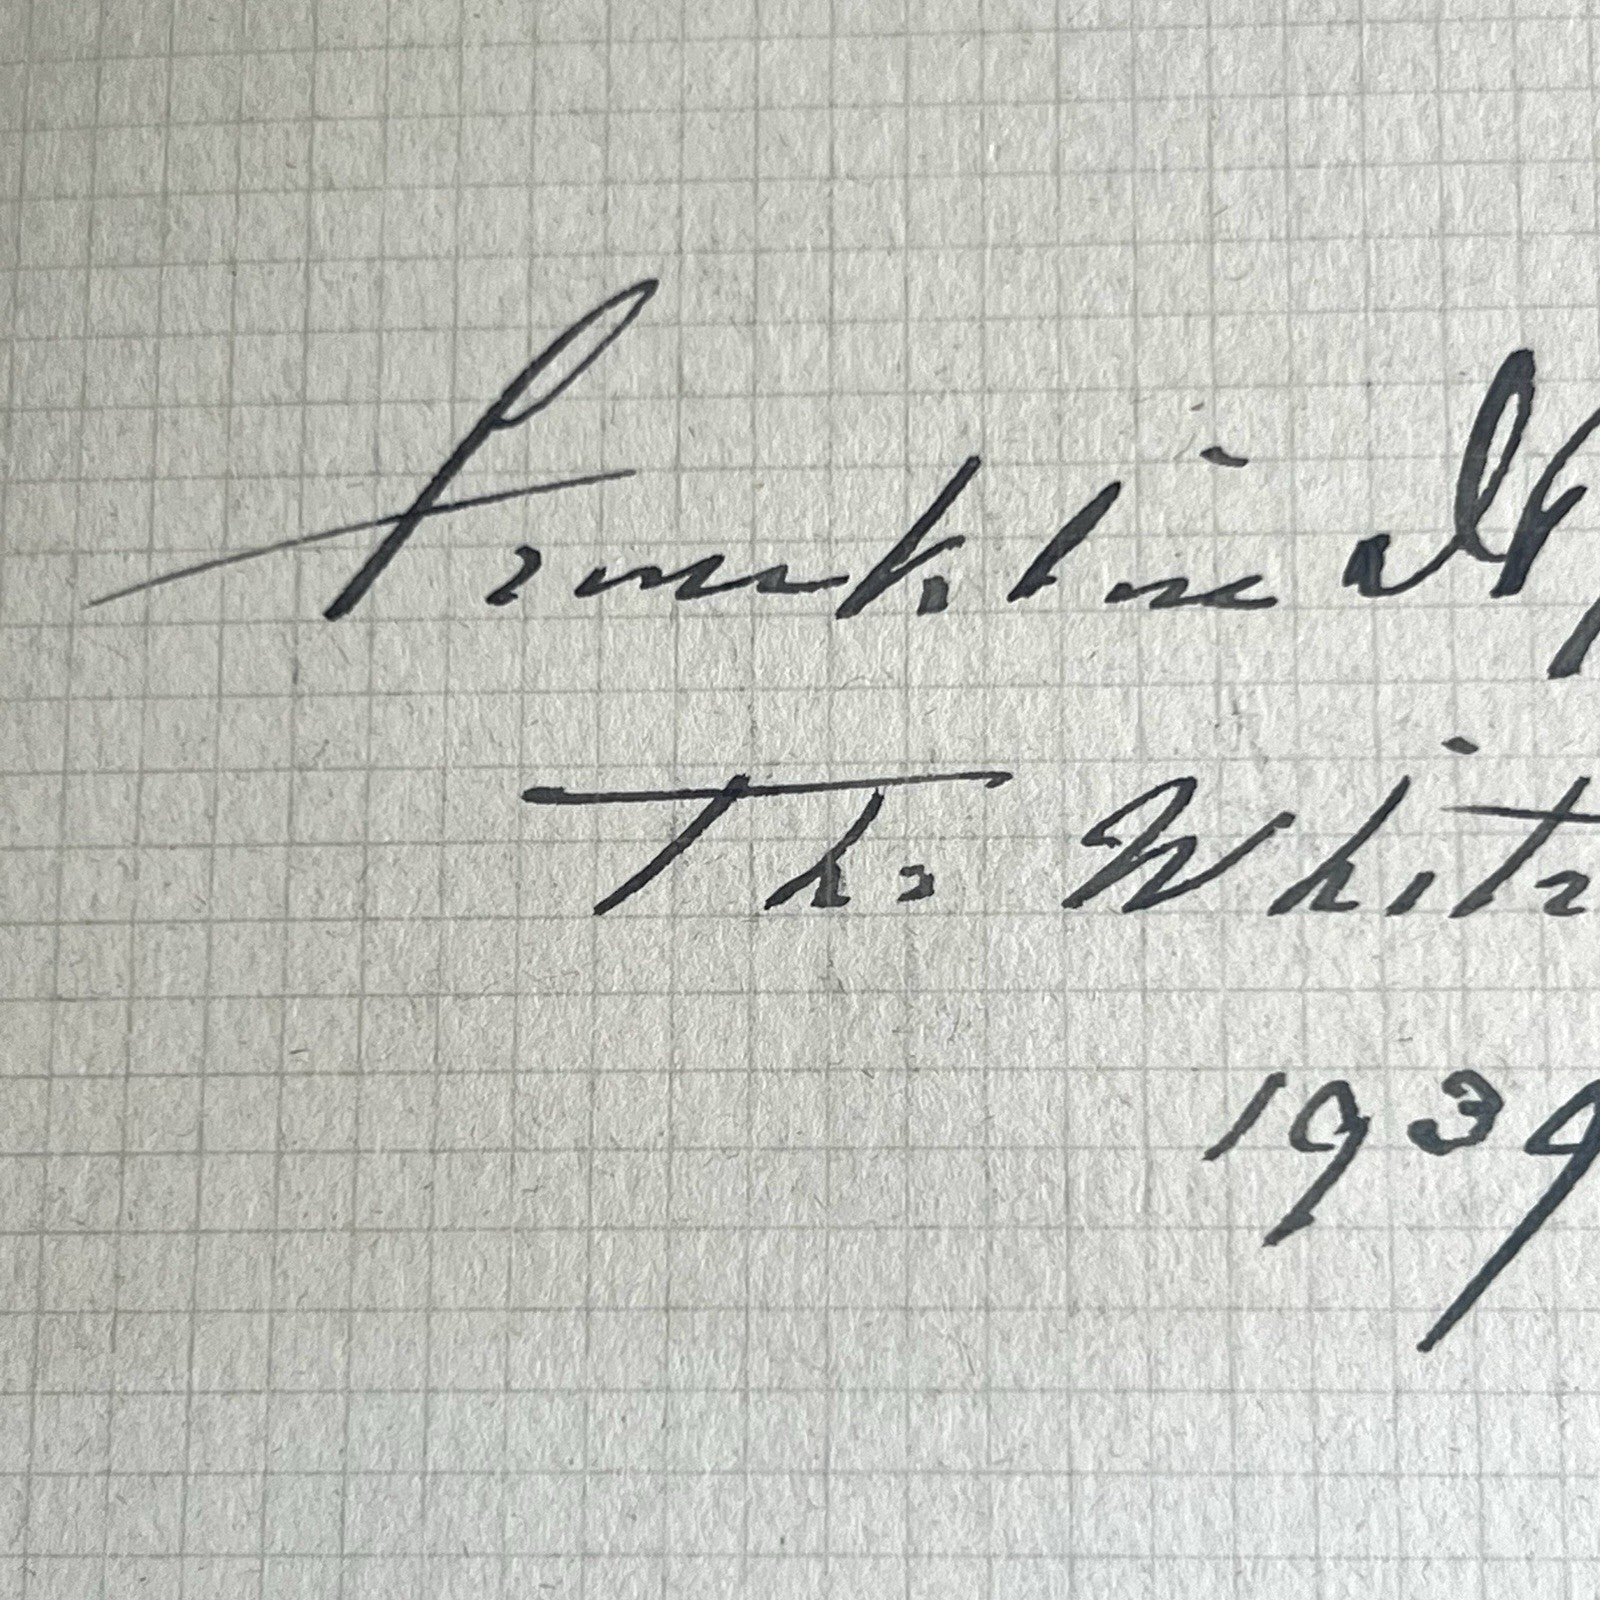 Franklin D
The White
1939